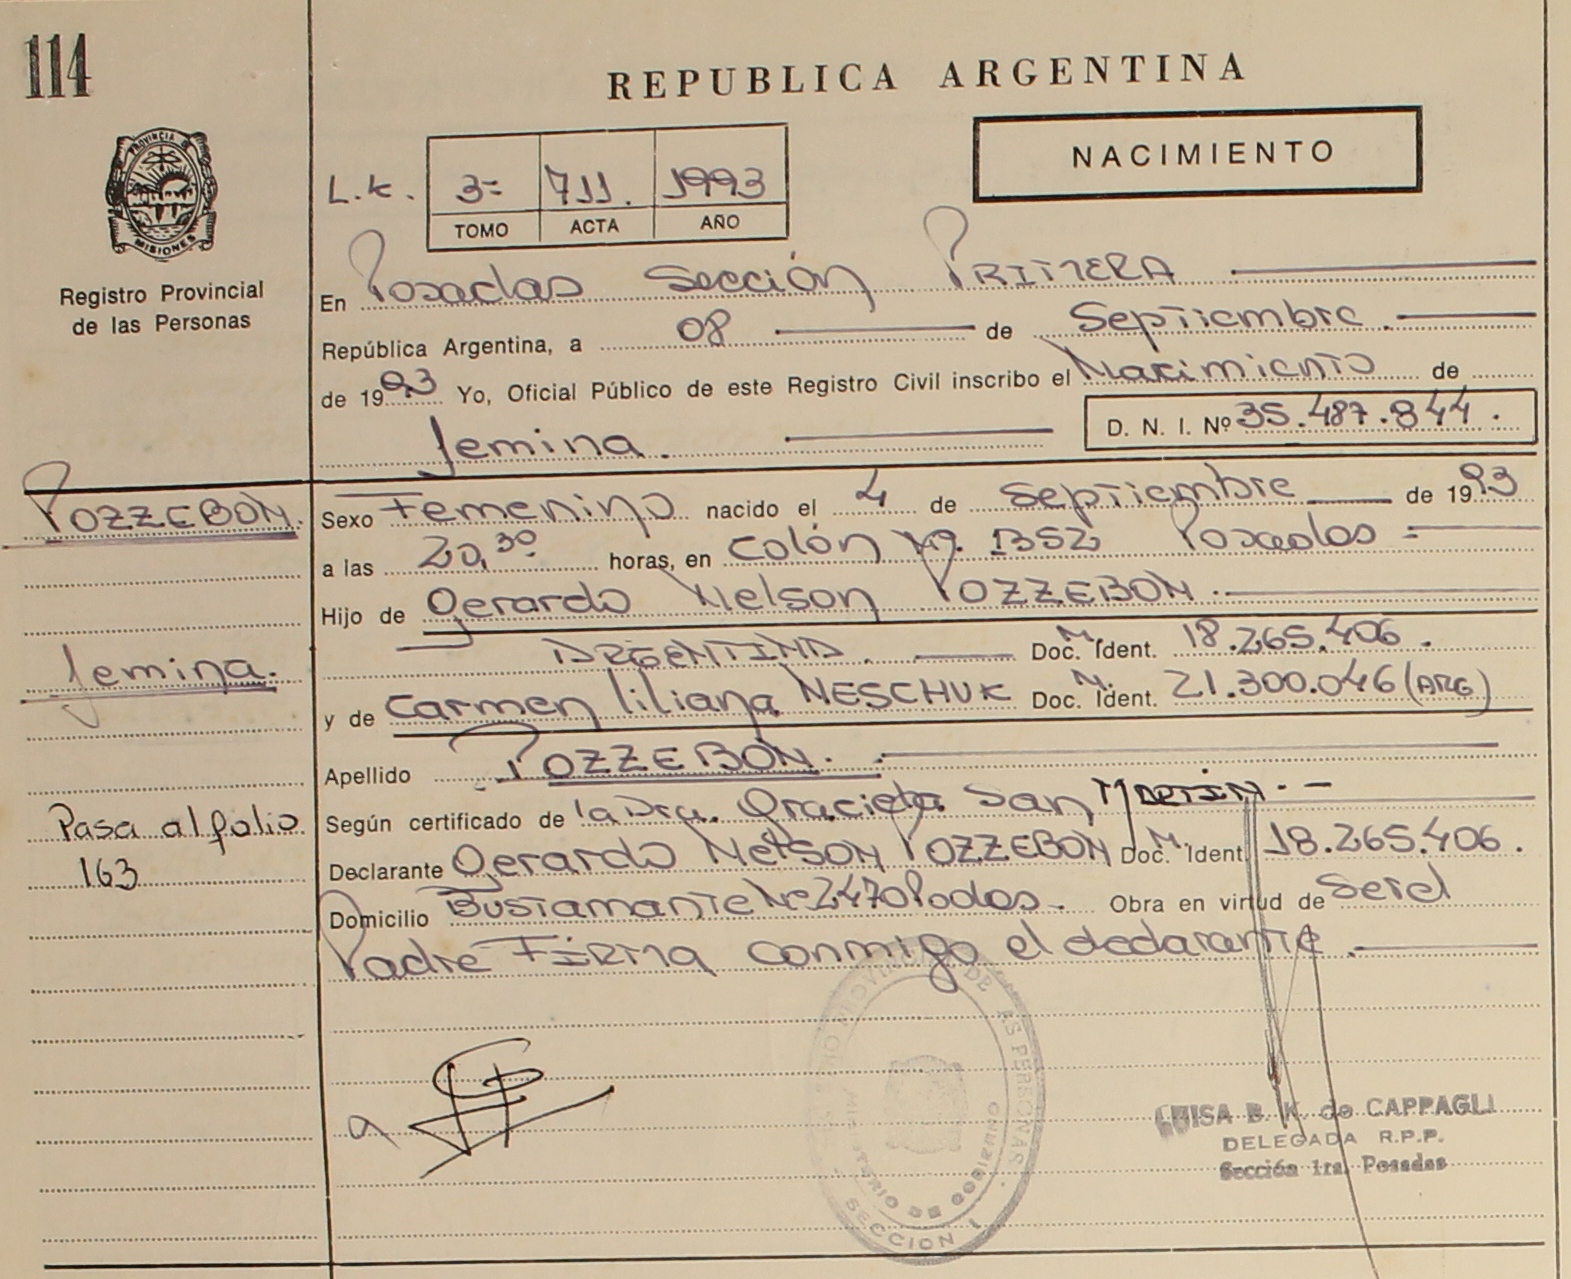 114
REPUBLICA ARGENTINA
NACIMIENTO
PROVINCIA DE
MISIONES
Registro Provincial
de las Personas
L.K. 3= 711. 1993
TOMO ACTA AÑO
En Posadas Sección PRIMERA
República Argentina, a 08 de Septiembre.
de 1993 Yo, Oficial Público de este Registro Civil inscribo el Nacimiento de
Jemina. D. N. I. Nº 35.487.844.
POZZEBON.
Sexo Femenino nacido el 4 de Septiembre de 1993
a las 20,30 horas, en Colón Nº. 1352 Posadas =
Hijo de Gerardo Nelson POZZEBON.
ARGENTINO. Doc. M. Ident. 18.265.406.
Jemina.
y de Carmen liliana NESCHUK Doc. M. Ident. 21.300.046 (ARG)
Apellido POZZEBON.
Según certificado de la Dra. Graciela San MARTIN. -
Pasa al folio
163
Declarante Gerardo Nelson POZZEBON Doc. M. Ident. 18.265.406.
Domicilio Bustamante Nº 2470 Podas. Obra en virtud de Ser el
Padre Firma conmigo el declarante.
LUISA B. K. de CAPPAGLI
DELEGADA R.P.P.
Sección 1ra. Posadas
MINISTERIO DE GOBIERNO
SECCION 1